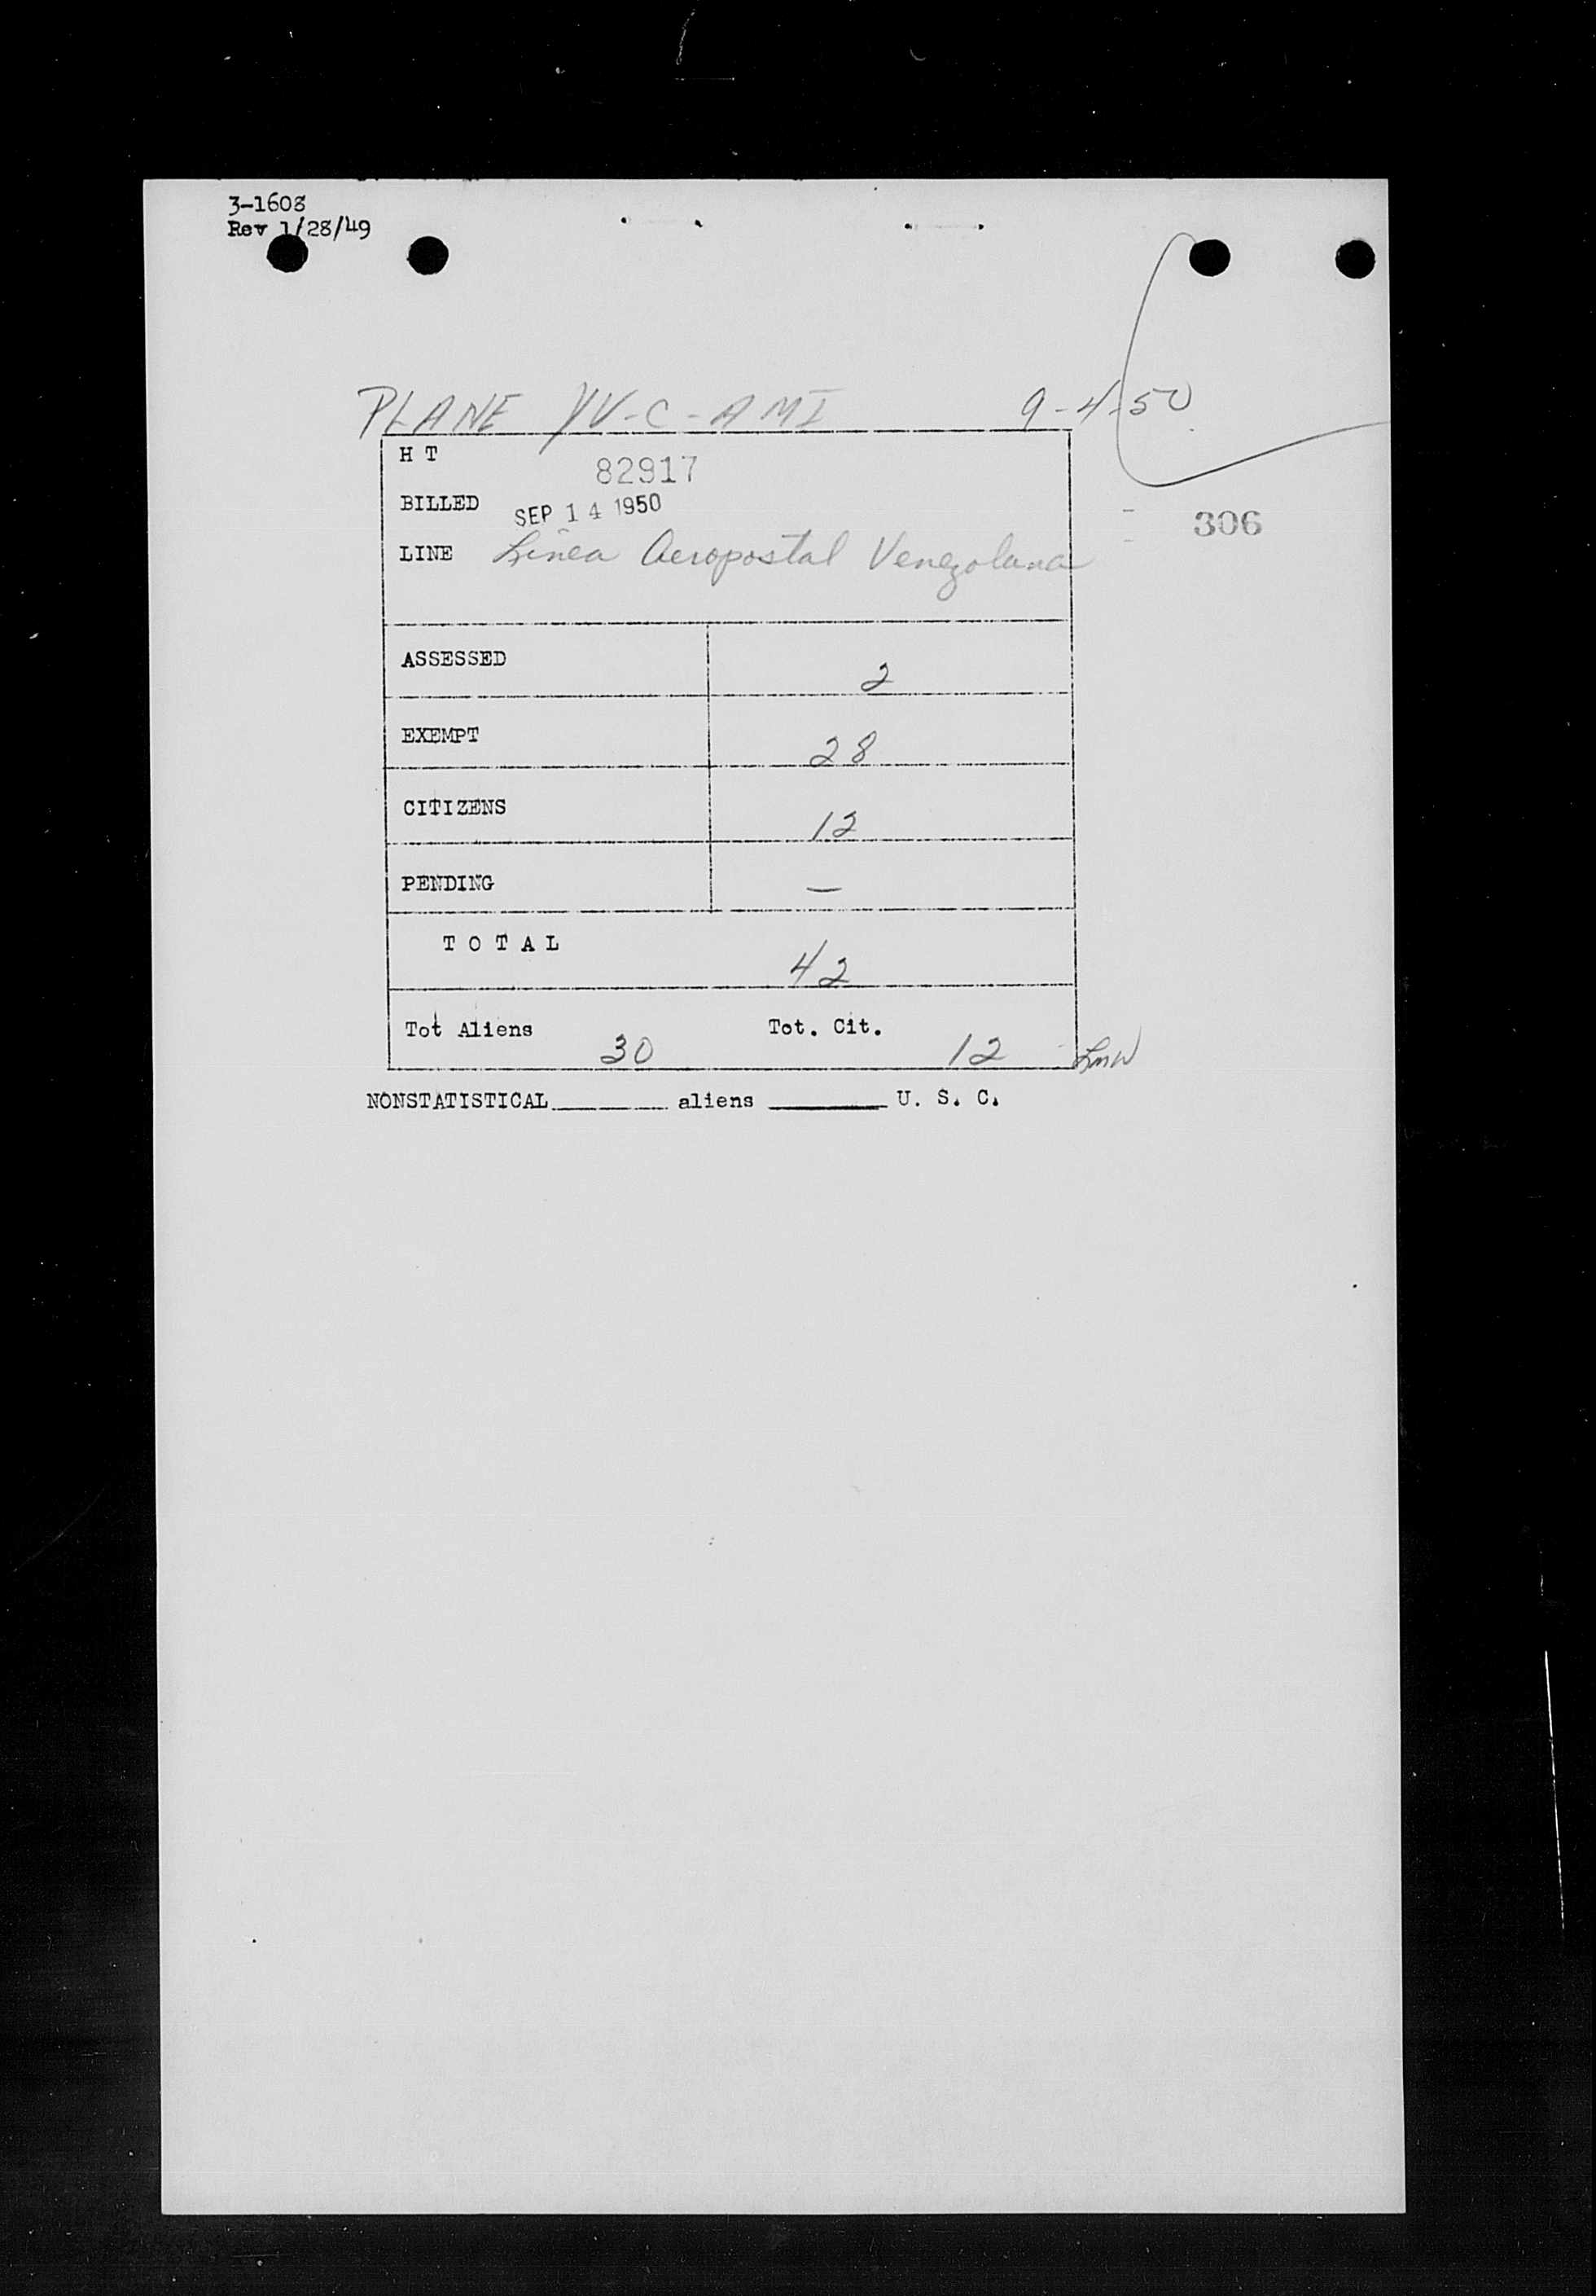 3-1608
Rev 1/28/49
PLANE YV-C-AMI 9-4-50
H T 82917
BILLED SEP 14 1950
306
LINE Linea Aeropostal Venezolana
ASSESSED 2
EXEMPT 28
CITIZENS 12
PENDING —
T O T A L 42
Tot Aliens 30 Tot. Cit. 12 LMW
NONSTATISTICAL______ aliens ______ U. S. C.